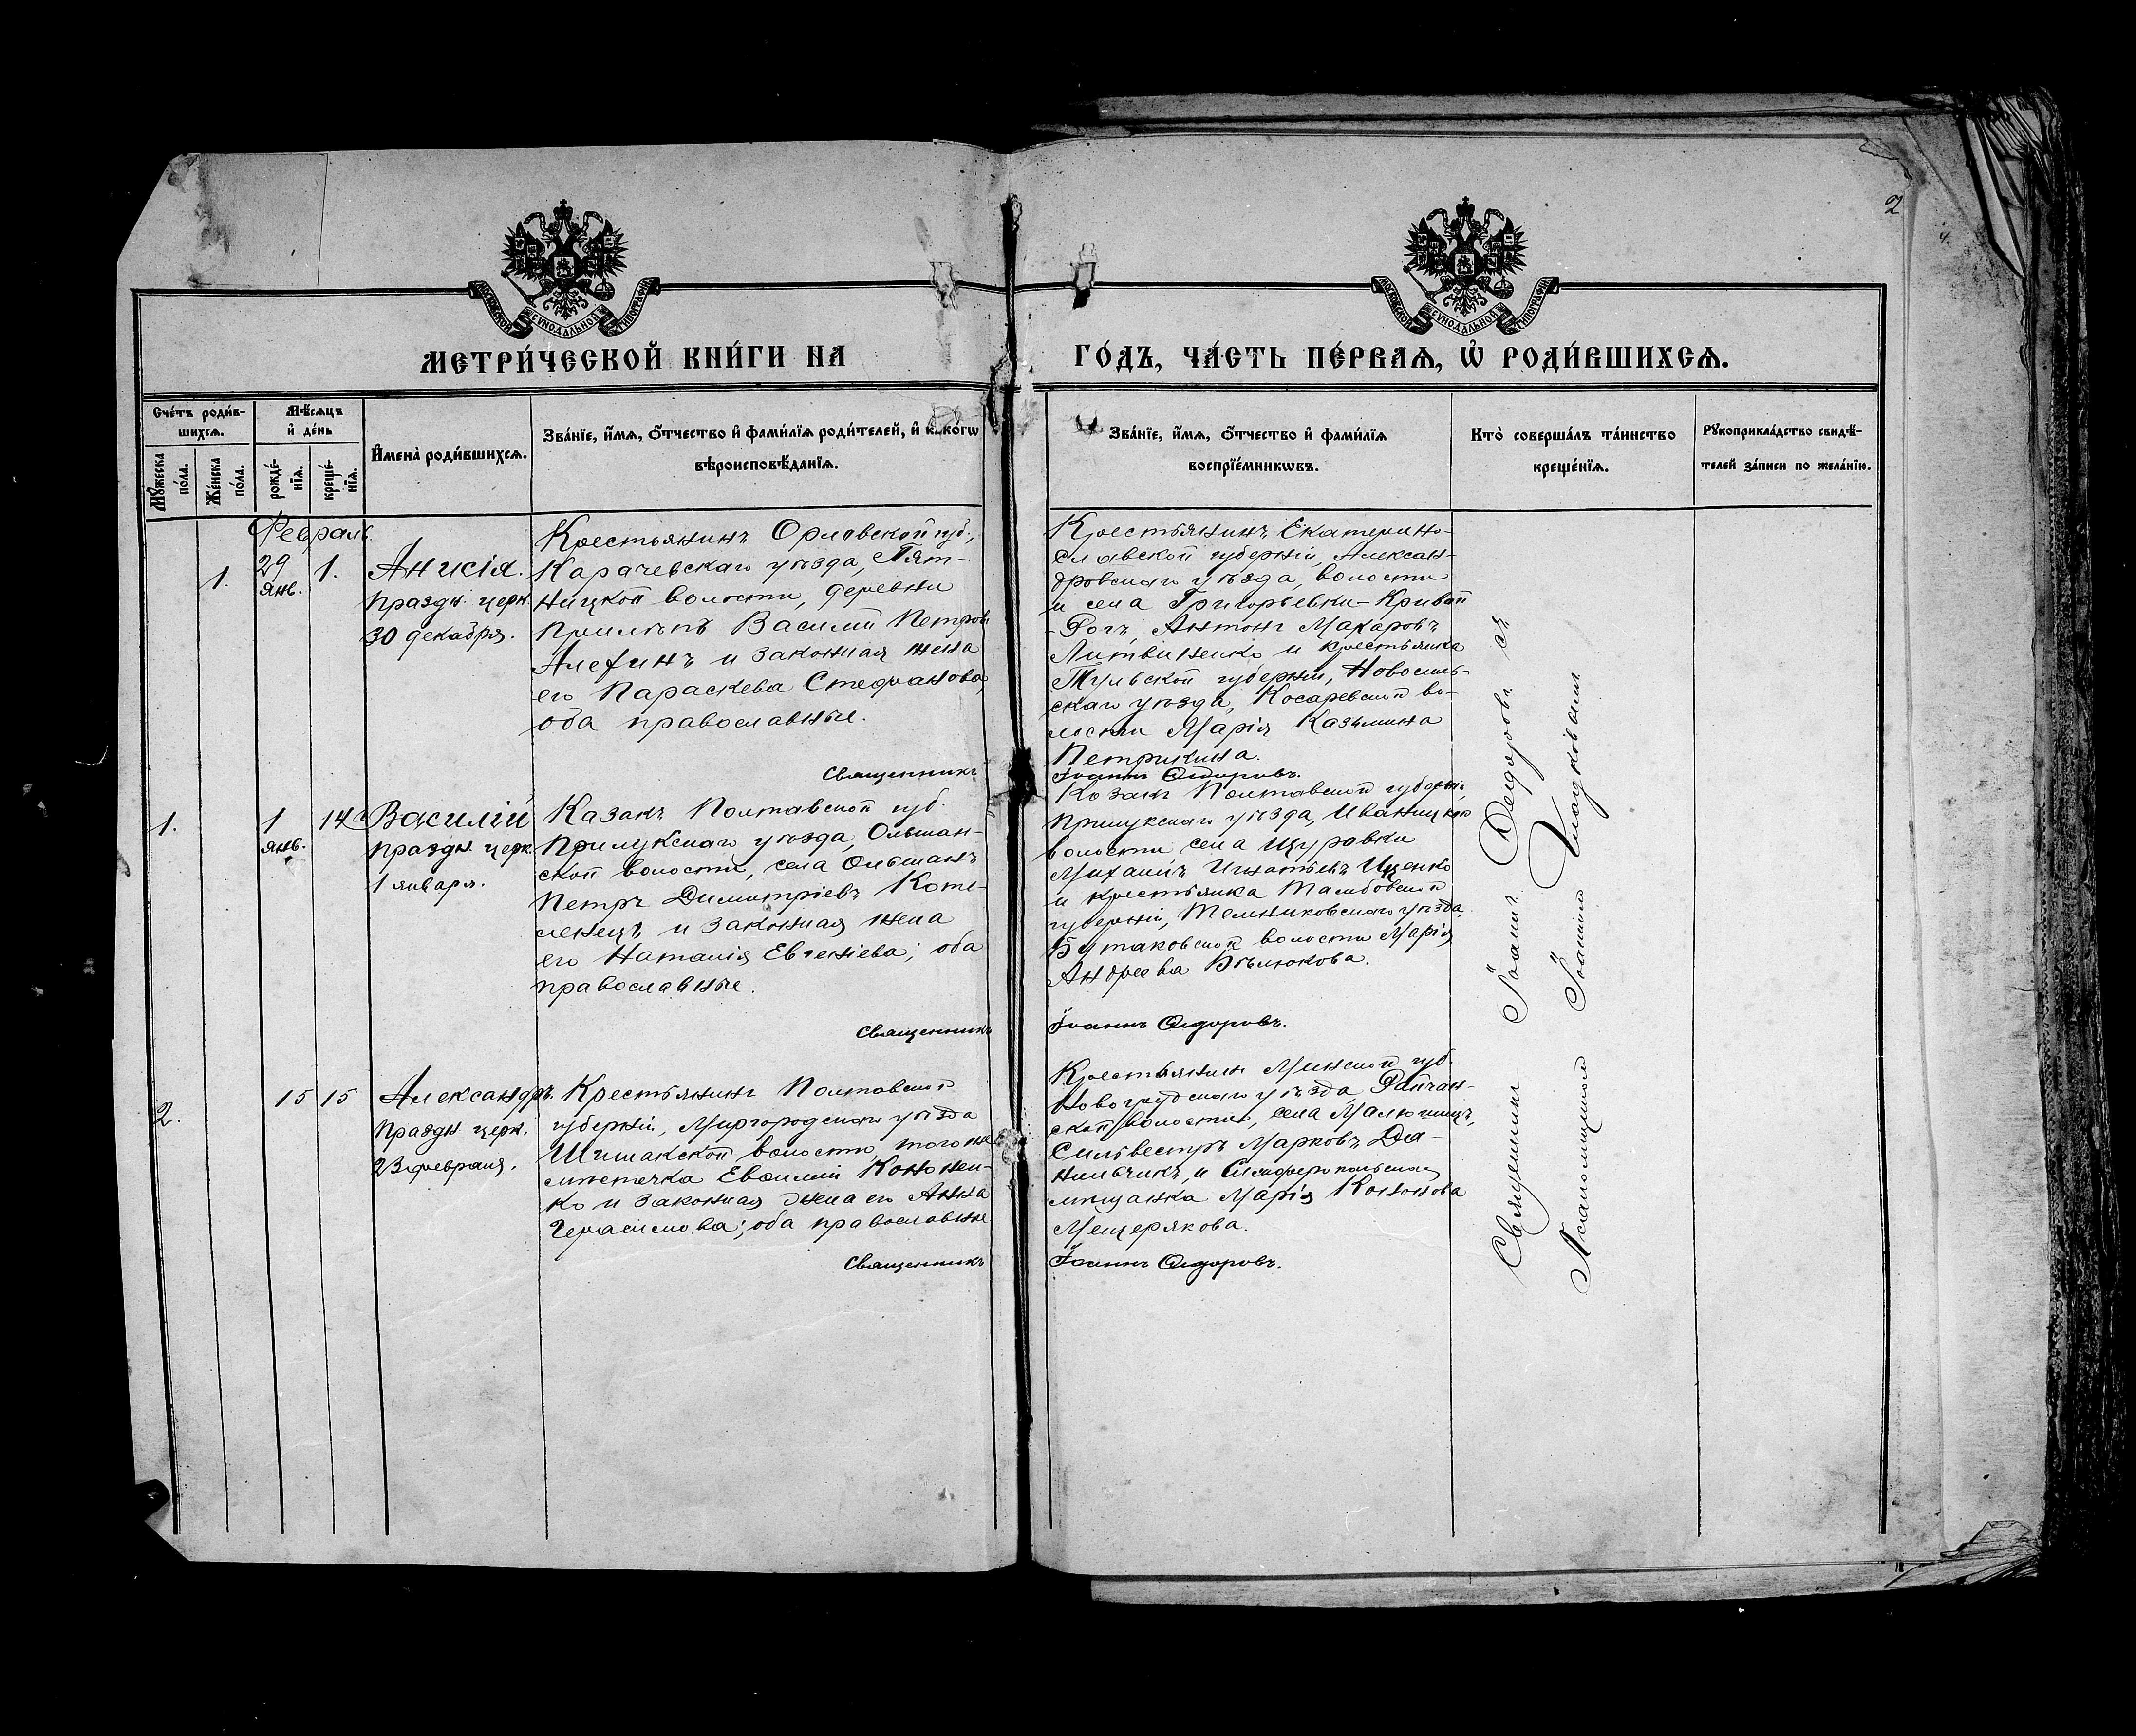 2
МОСКОВСКОЙ СѴНОДАЛЬНОЙ ТИПОГРАФІИ
МОСКОВСКОЙ СѴНОДАЛЬНОЙ ТИПОГРАФІИ
МЕТРИ́ЧЕСКОЙ КНИ́ГИ НА
ГО́ДЪ, ЧА́СТЬ ПЕ́РВАѦ, Ѡ҆ РОДИ́ВШИХСѦ.
Сче́тъ роди́в-
шихсѧ.
Мꙋ́жеска по́ла.
Же́нска по́ла.
Мѣ́сѧцъ
и҆ де́нь
рожде́-
нїѧ.
креще́-
нїѧ.
И҆мена̀ роди́вшихсѧ.
Зва́нїе, и҆́мѧ, ѻ҆́тчество и҆ фами́лїѧ роди́телей, и҆ како́гѡ
вѣроисповѣ́данїѧ.
Зва́нїе, и҆́мѧ, ѻ҆́тчество и҆ фами́лїѧ
воспрїе́мникѡвъ.
Кто̀ соверша́лъ та́инство
креще́нїѧ.
Рꙋкоприкла́дство свидѣ́-
телей за́писи по жела́нїю.
Февраль.
1.
29
янв.
1.
Анисія.
Праздн. церк.
30 декабря.
Крестьянинъ Орловской губ.,
Карачевскаго уѣзда, Пят-
ницкой волости, деревни
Василій Петровъ
Алехинъ и законная жена
его Параскева Стефанова,
оба православные.
Священникъ
Крестьянинъ Екатерино-
славской губерніи, Алексан-
дровскаго уѣзда, волости
и села Григорьевки-Кривой
-Рогъ, Антонъ Макаровъ
Литвиненко и крестьянка
Тульской губерніи, Новосиль-
скаго уѣзда, Косаревской во-
лости Марія Казьмина
Петрикина.
Іоаннъ Ѳедоровъ.
1.
1
янв.
14
Василій
Праздн. церк.
1 января.
Казакъ Полтавской губ.
Прилукскаго уѣзда, Ольшан-
ской волости, села Ольшанъ
Петръ Димитріевъ Коме-
ленецъ и законная жена
его Наталія Евгеніева; оба
православные.
Священникъ
Козакъ Полтавской губерніи,
Прилукскаго уѣзда, Иваницкой
волости села Щуровки
Михаилъ Игнатьевъ Ищенко
и крестьянка Тамбовской
губерніи, Темниковскаго уѣзда
Бутаковской волости Марія
Андреева Бѣлюкова.
Іоаннъ Ѳедоровъ.
2.
15
15
Александръ.
Праздн. церк.
23 февраля.
Крестьянинъ Полтавской
губерніи, Миргородскаго уѣзда
Шишакской волости, того же
мѣстечка Евфимій Кононен-
ко и законная жена его Анна
Герасимова; оба православные
Священникъ
Крестьянинъ Минской губ.
Новогрудскаго уѣзда, Райчан-
ской волости, села Малюшицъ,
Сильвестръ Марковъ Да-
нильчикъ, и Симферопольская
мѣщанка Марія Кононова
Мещерякова.
Іоаннъ Ѳедоровъ.
Священникъ Іоаннъ Ѳедоровъ съ
Псаломщикомъ Іоанномъ